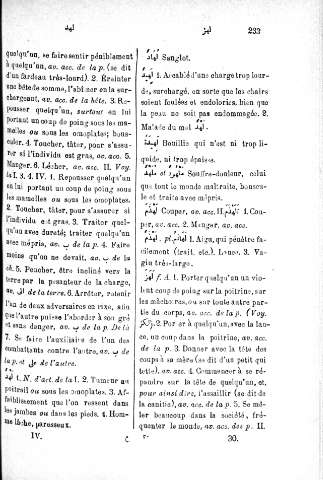 لهد
لهز
233
quelqu'un, se faire sentir péniblement
à quelqu'un, av. acc. de la p. (se dit
d'un fardeau très-lourd). 2. Éreinter
une bête de somme, l'abîmer en la sur-
chargeant, av. acc. de la bête. 3. Re-
pousser quelqu'un, surtout en lui
portant un coup de poing sous les ma-
melles ou sous les omoplates; bous-
culer. 4. Toucher, tâter, pour s'assu-
rer si l'individu est gras, av. acc. 5.
Manger. 6. Lécher, av. acc. II. Voy.
la I. 3. 4. IV. 1. Repousser quelqu'un
en lui portant un coup de poing sous
les mamelles ou sous les omoplates.
2. Toucher, tâter, pour s'assurer si
l'individu est gras. 3. Traiter quel-
qu'un avec dureté; traiter quelqu'un
avec mépris, av. ب de la p. 4. Faire
moins qu'on ne devait, av. ب de la
ch. 5. Pencher, être incliné vers la
terre par la pesanteur de la charge,
av. الى de la terre. 6. Arrêter, retenir
l'un de deux adversaires en rixe, afin
que l'autre puisse l'aborder à son gré
et sans danger, av. ب de la p. De là
7. Se faire l'auxiliaire de l'un des
combattants contre l'autre, av. ب de
la p. et على de l'autre.
لهد 1. N. d'act. de la I. 2. Tumeur au
poitrail ou sous les omoplates. 3. Af-
faiblissement que l'on ressent dans
les jambes ou dans les pieds. 4. Hom-
me lâche, paresseux.
IV.
Sanglot.
1. Accablé d'une charge trop lour-
de, surchargé, en sorte que les chairs
soient foulées et endolories, bien que
la peau ne soit pas endommagée. 2.
Malade du mal لهد.
Bouillie qui n'est ni trop li-
quide, ni trop épaisse.
Souffre-douleur, celui
que tout le monde maltraite, bouscu-
le et traite avec mépris.
لهذم Couper, av. acc. II. تلهذم 1. Cou-
per, av. acc. 2. Manger, av. acc.
لهذم, pl. لهاذم 1. Aigu, qui pénètre fa-
cilement (trait, etc.). Lance. 3. Va-
gin très-large.
لهز f. A. 1. Porter à quelqu'un un vio-
lent coup de poing sur la poitrine, sur
les mâchoires, ou sur toute autre par-
tie du corps, av. acc. de la p. (Voy.
لكز). 2. Porter à quelqu'un, avec la lan-
ce, un coup dans la poitrine, av. acc.
de la p. 3. Donner avec la tête des
coups à sa mère (se dit d'un petit qui
tette), av. acc. 4. Commencer à se ré-
pandre sur la tête de quelqu'un, et,
pour ainsi dire, l'assaillir (se dit de
la canitie), av. acc. de la p. 5. Se mê-
ler beaucoup dans la société, fré-
quenter le monde, av. acc. des p. II.
30.